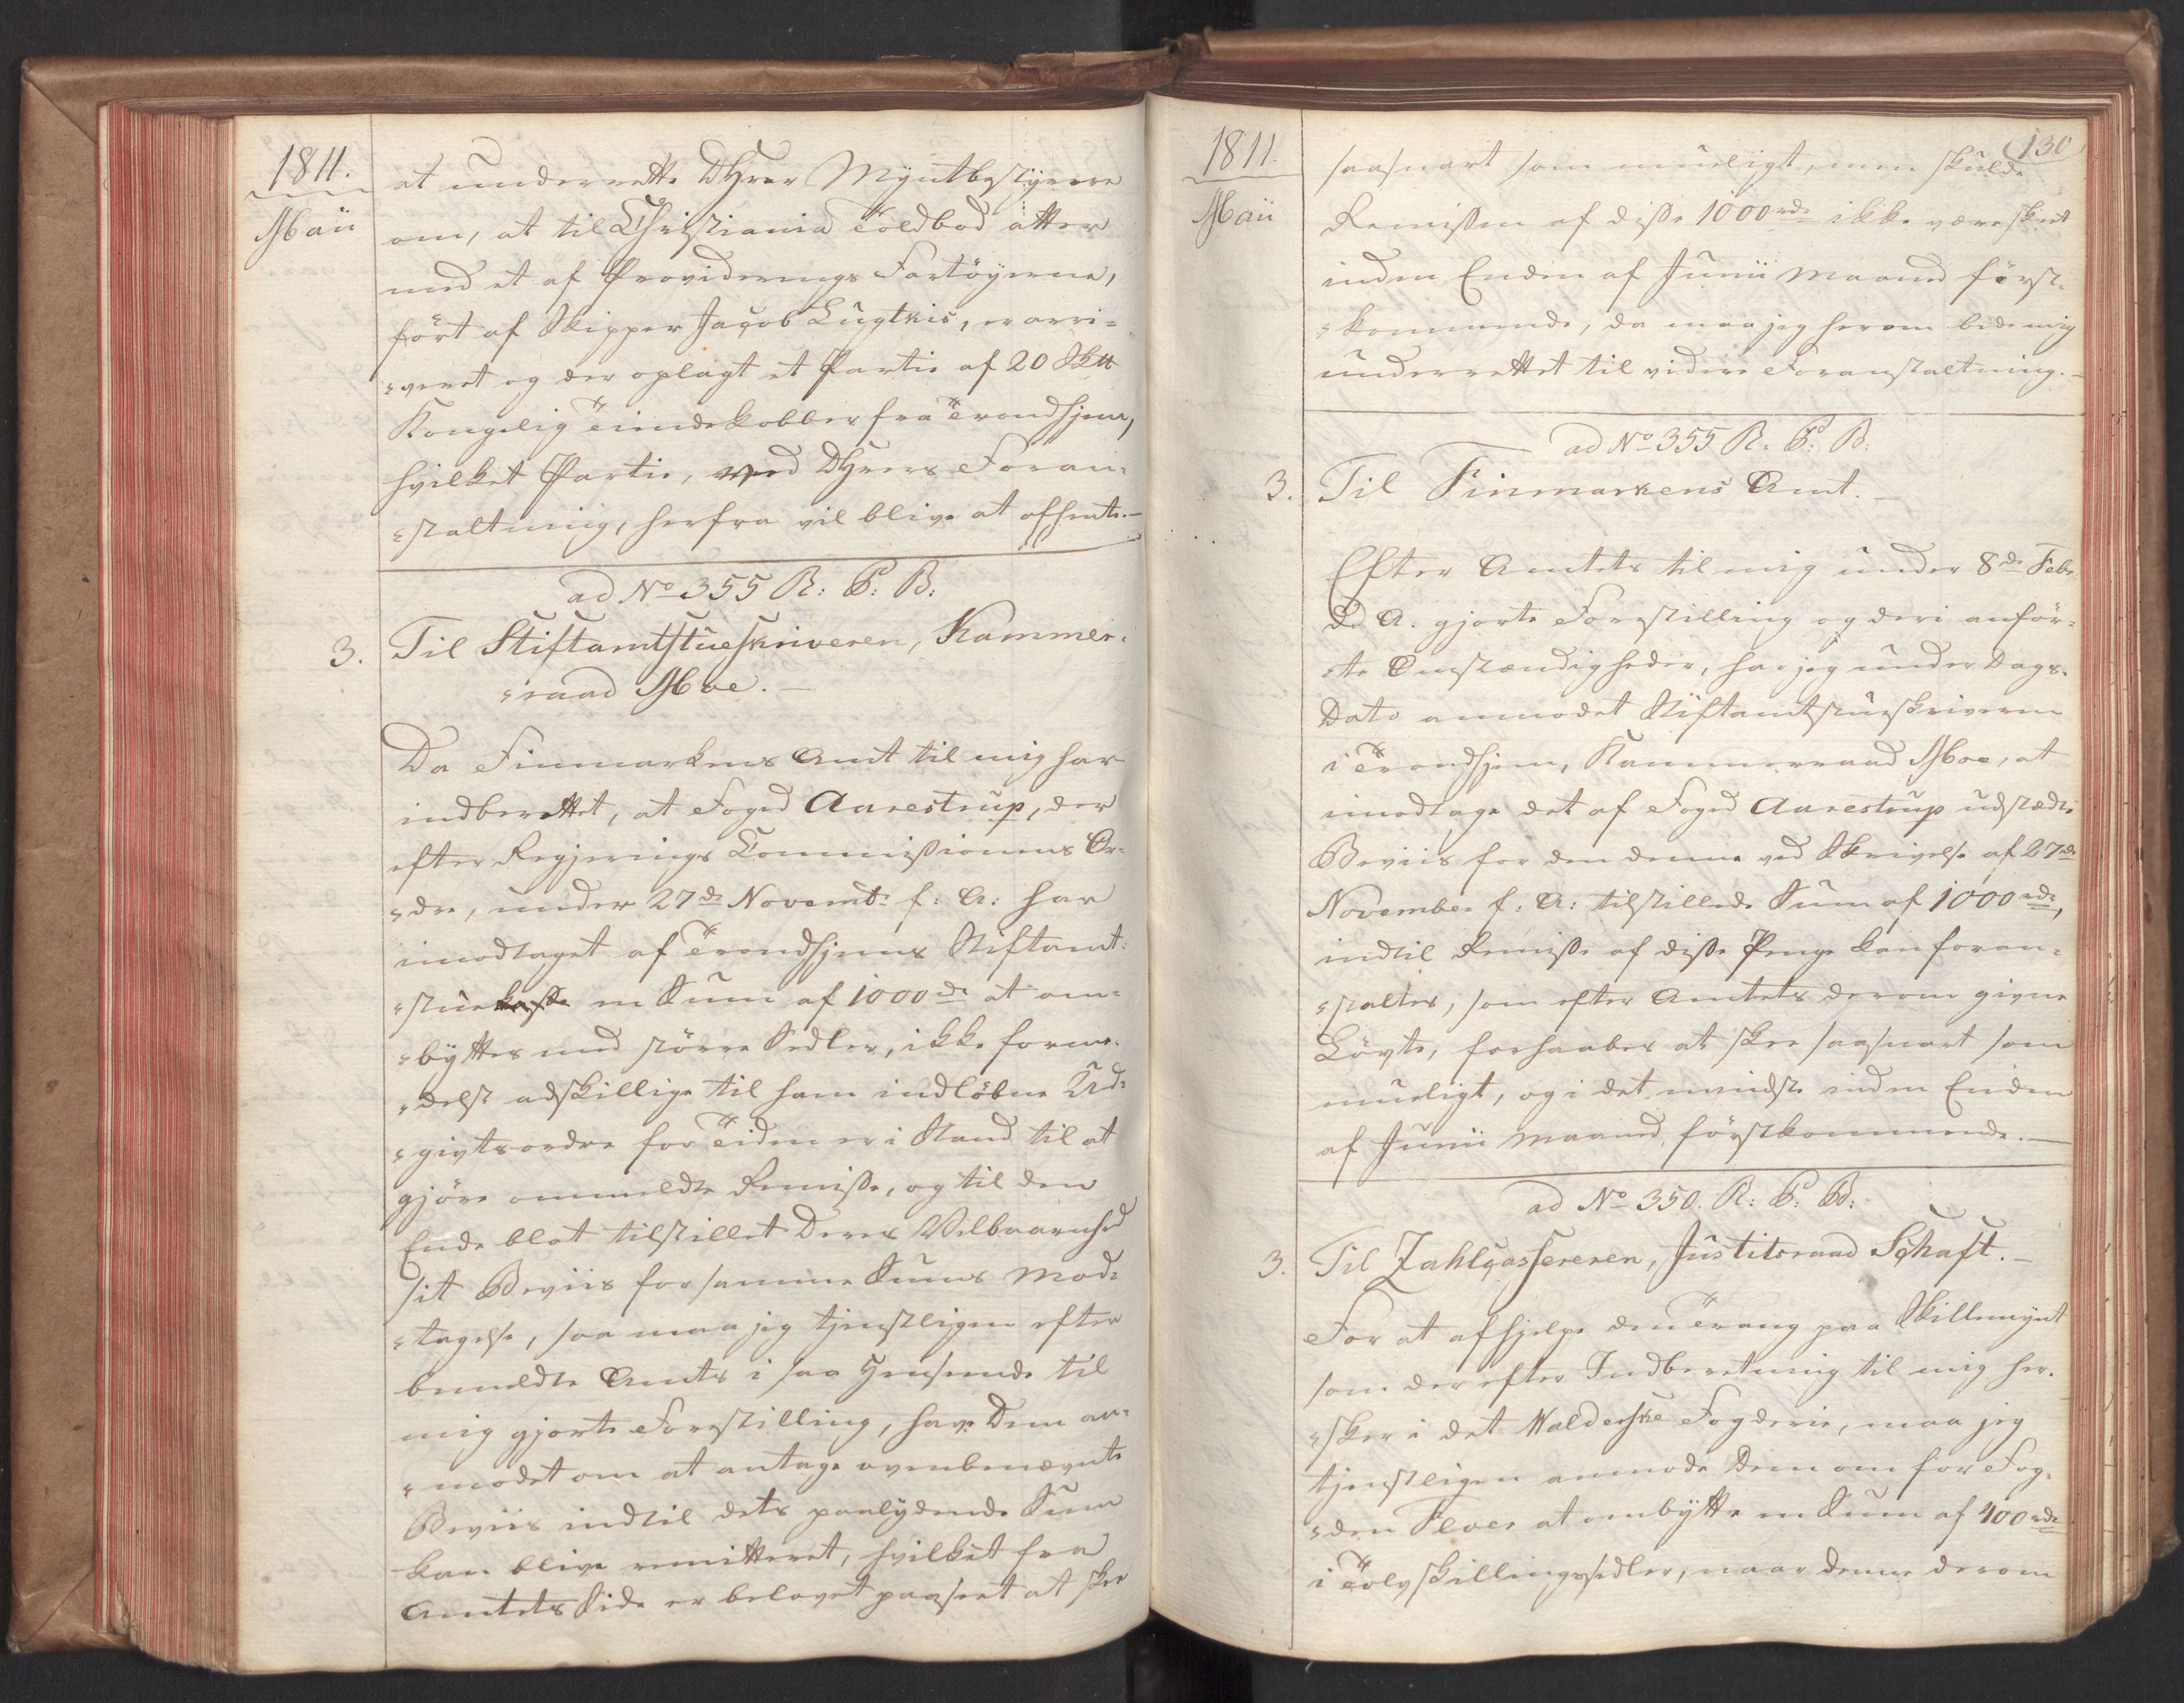 1811.
Maii
at underrette DHrer Myntbestyrere
om, at til Christiania Toldbod atter
med et af Provideringsfartöyerne,
fört af Skipper Jacob Lugtnis, er arri-
-veret og der oplagt et Partie af 20 Sk℔
Kongelig Tiendekobber fra Trondhjem,
hvilket Partie, ved DHrers Foran-
-staltning, herfra vil blive at afhente.-
ad No 355 R: C: B:
3. Til Stiftamtstueskriveren, Kammer-
-raad Moe.-
Da Finmarkens Amt til mig har
indberettet, at Foged Aarestrup, der
efter Regjerings Commissionens Or-
-dre, under 27de Novembr f: A: har
imodtaget af Trondhjems Stiftamt-
-stuekasse en Sum af 1000 rd at om-
-byttes med större Sedler, ikke forme-
-delst adskillige til ham indlöbne Ud-
-givtsordre for Tiden er i Stand til at
gjöre ommeldte Remisse, og til den
Ende blot tilstillet Deres Velbaarenhed
sit Beviis for samme Sums Mod-
-tagelse, saa maa jeg tjenstligen efter
bemeldte Amts i saa Henseende til
mig gjorte Forestilling, have Dem an-
-modet om at antage ovenbenævnte
Beviis indtil dets paalydende Sum
kan blive remitteret, hvilket fra
Amtets Side er belovet paaseet at skee
1811.
Maii
130
saasnart som mueligt, men skulde
Remissen af disse 1000 rd ikke være skeet
inden Enden af Junii Maaned först-
-kommende, da maa jeg herom bede mig
underrettet til videre Foranstaltning.-
ad No 355 R: C: B:
3. Til Finmarkens Amt.-
Efter Amtets til mig under 8de Febr:
d. A. gjorte Forestilling og deri anför-
-te Omstændigheder, har jeg under Dags
Dato anmodet Stiftamtstueskriveren
i Trondhjem, Kammerraad Moe, at
imodtage det af Foged Aarestrup udstædte
Beviis for den denne ved Skrivelse af 27de
November f: A: tilstillede Sum af 1000 rd,
indtil Remisse af disse Penge kan foran-
-staltes, som efter Amtets derom givne
Lövte, forhaabes at skee saasnart som
mueligt, og i det mindste inden Enden
af Junii Maaned förstkommende.-
ad No 350. R: C: B:
3. Til Zahlcassereren, Justitsraad Schaft.-
For at afhjelpe den Trang paa Skillemynt
som der efter Indberetning til mig her-
-sker i det Walderske Fogderie, maa jeg
tjenstligen anmode Dem om for Fog-
-den Floer at ombytte en Sum af 400 rd
i Tolvskillingssedler, naar denne derom